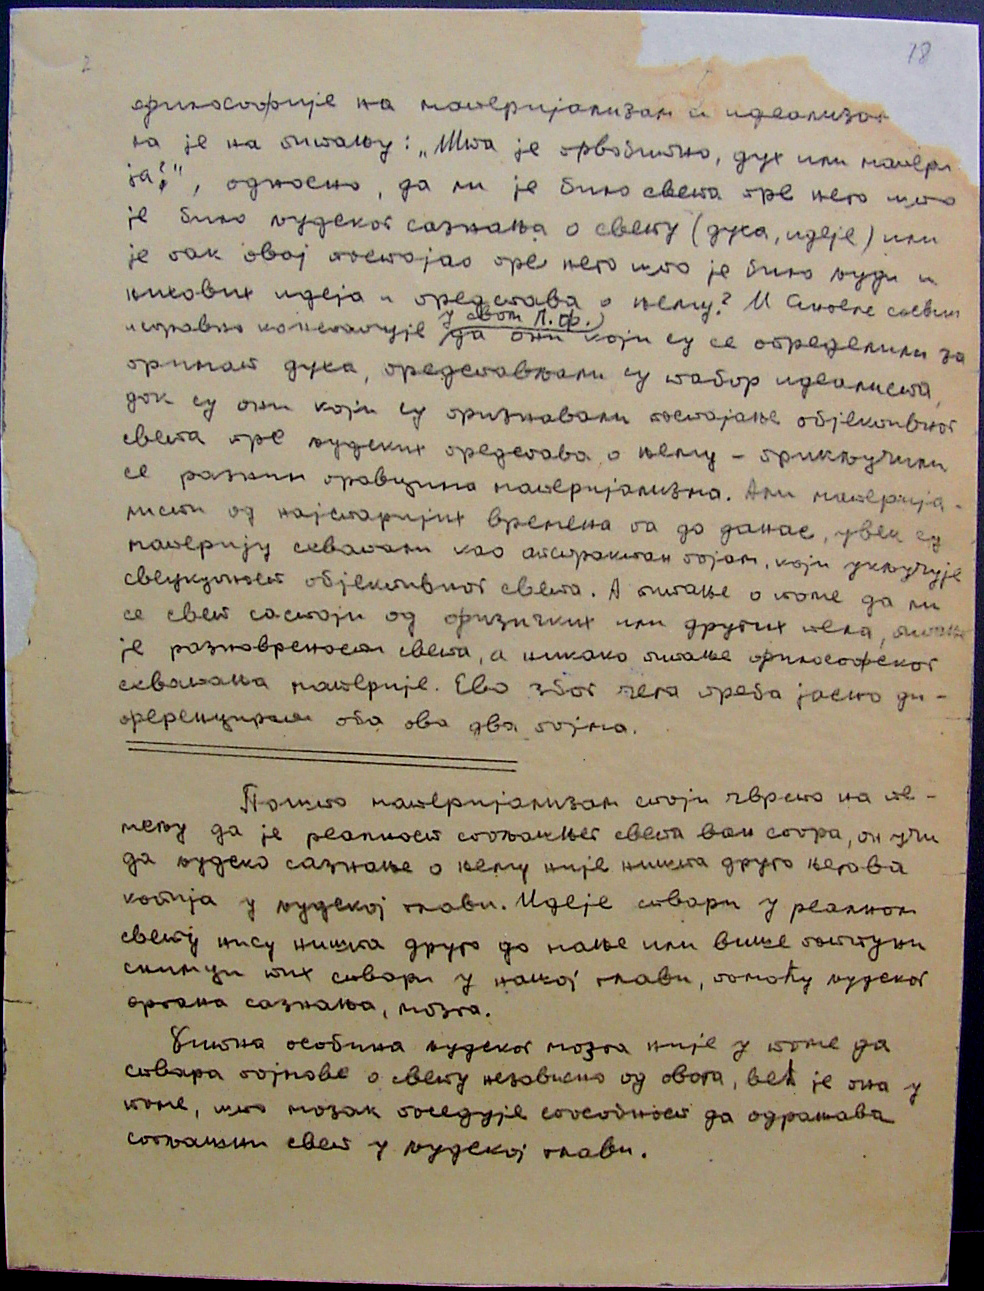 2
18
филозофије на материјализам и идеализам
на је на питању: „Шта је првобитно, дух или матери
ја?“, односно, да ли је било света пре него што
је било људског сазнања о свету (духа, идеје) или
је пак овај постојао пре него што је било људи и
њихових идеја и представа о њему? И сасвим
у свом Л. Ф.
исправно констатује да они који су се определили за
примат духа, представљали су табор идеалиста,
док су они који су признавали постојање објективног
света пре људских представа о њему – прикључили
се разним правцима материјализма. Али материја-
листи од најстаријих времена па до данас, увек су
материју схватали као апстрактан појам, који укључује
свеукупност објективног света. А питање о томе да ли
се свет састоји од физичких или других тела, питање
је разноврсности света, а никако питање филозофског
схватања материје. Ево због чега треба јасно ди-
ференцирати оба ова два појма.
Пошто материјализам стоји чврсто на те-
мељу да је реалност спољашњег света ван спора, он учи
да људско сазнање о њему није ништа друго његова
копија у људској глави. Идеје ствари у реалном
свету нису ништа друго до мање или више потпуни
снимци тих ствари у нашој глави, помоћу људског
органа сазнања, мозга.
Битна особина људског мозга није у томе да
ствара појмове о свету независно од овога, већ је она у
томе, што мозак поседује способност да одражава
спољашњи свет у људској глави.